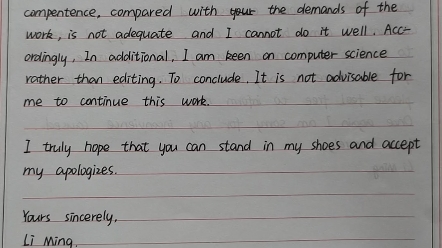 compentence, compared with the demands of the
work, is not adequate and I cannot do it well. Acc-
ordingly, In additional, I am keen on computer science
rather than editing. To conclude. It is not advisable for
me to continue this work.
I truly hope that you can stand in my shoes and accept
my apologizes.
Yours sincerely,
Li Ming.